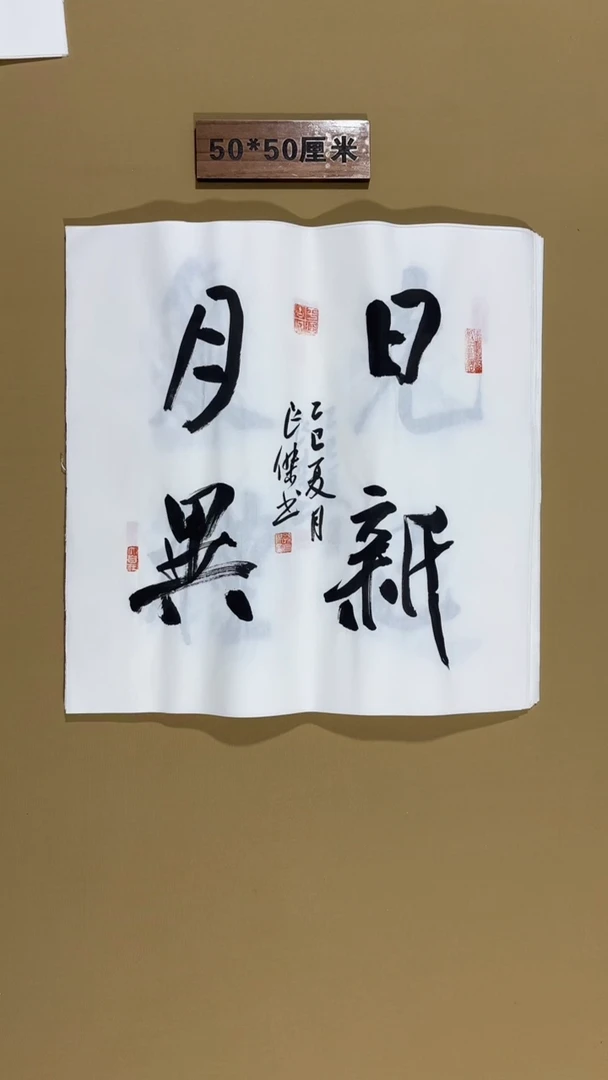 50*50厘米
日新
月異
乙巳夏月
傑书